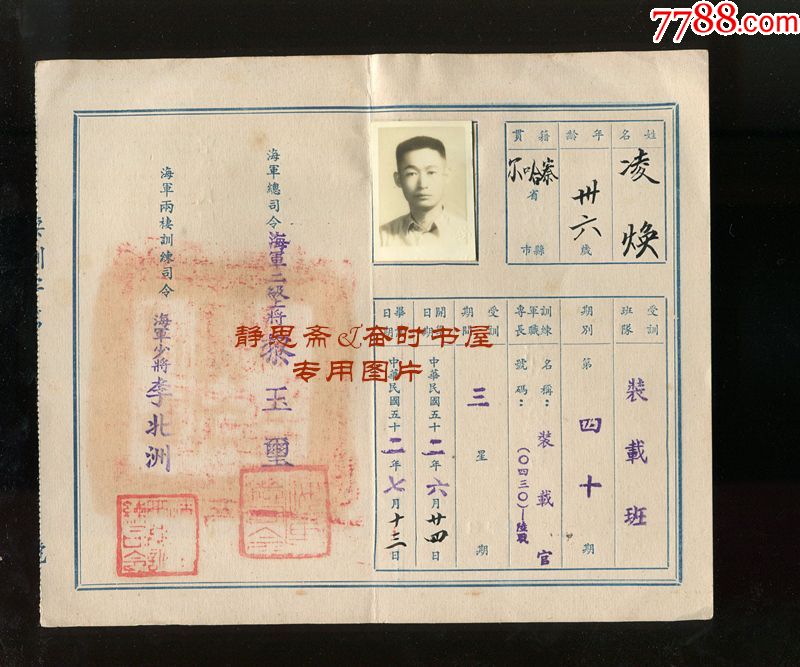 7788.com
姓名
凌煥
年齡
卅六歲
籍貫
察哈尔省
縣市
受訓班隊
裝載班
期別
第四十期
訓練名稱：裝載官
軍職專長號碼：(〇四三〇)—陸戰
受訓期間
三星期
開訓日期
中華民國五十二年六月廿四日
畢業日期
中華民國五十二年七月十三日
海軍總司令海軍二級上將黎玉璽
海軍兩棲訓練司令海軍少將李北洲
静思斋&奋时书屋
专用图片